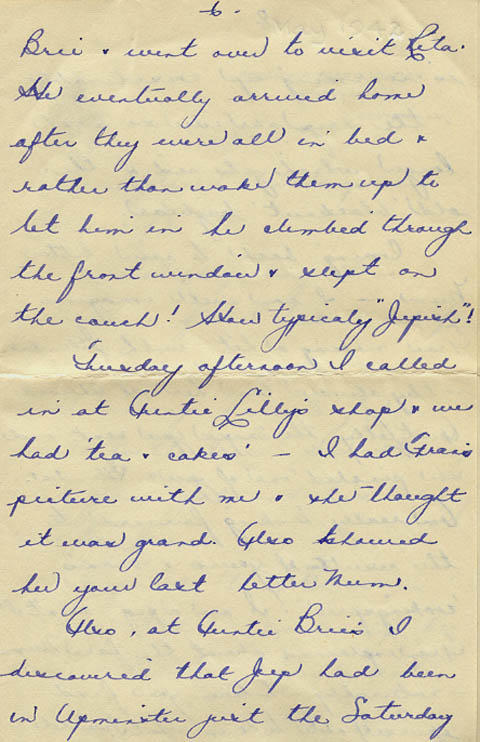 -6-
Brie & went over to visit Rita.
He eventually arrived home
after they were all in bed &
rather than wake them up to
let him in he climbed through
the front window & slept on
the couch! How typicaly "Jepish"!
Tuesday afternoon I called
in at Auntie Lilly's shop & we
had 'tea & cakes' – I had Fran's
picture with me & she thought
it was grand. Also showed
her your last letter Mum.
Also, at Auntie Brie's I
discovered that Jep had been
in Upminster just the Saturday